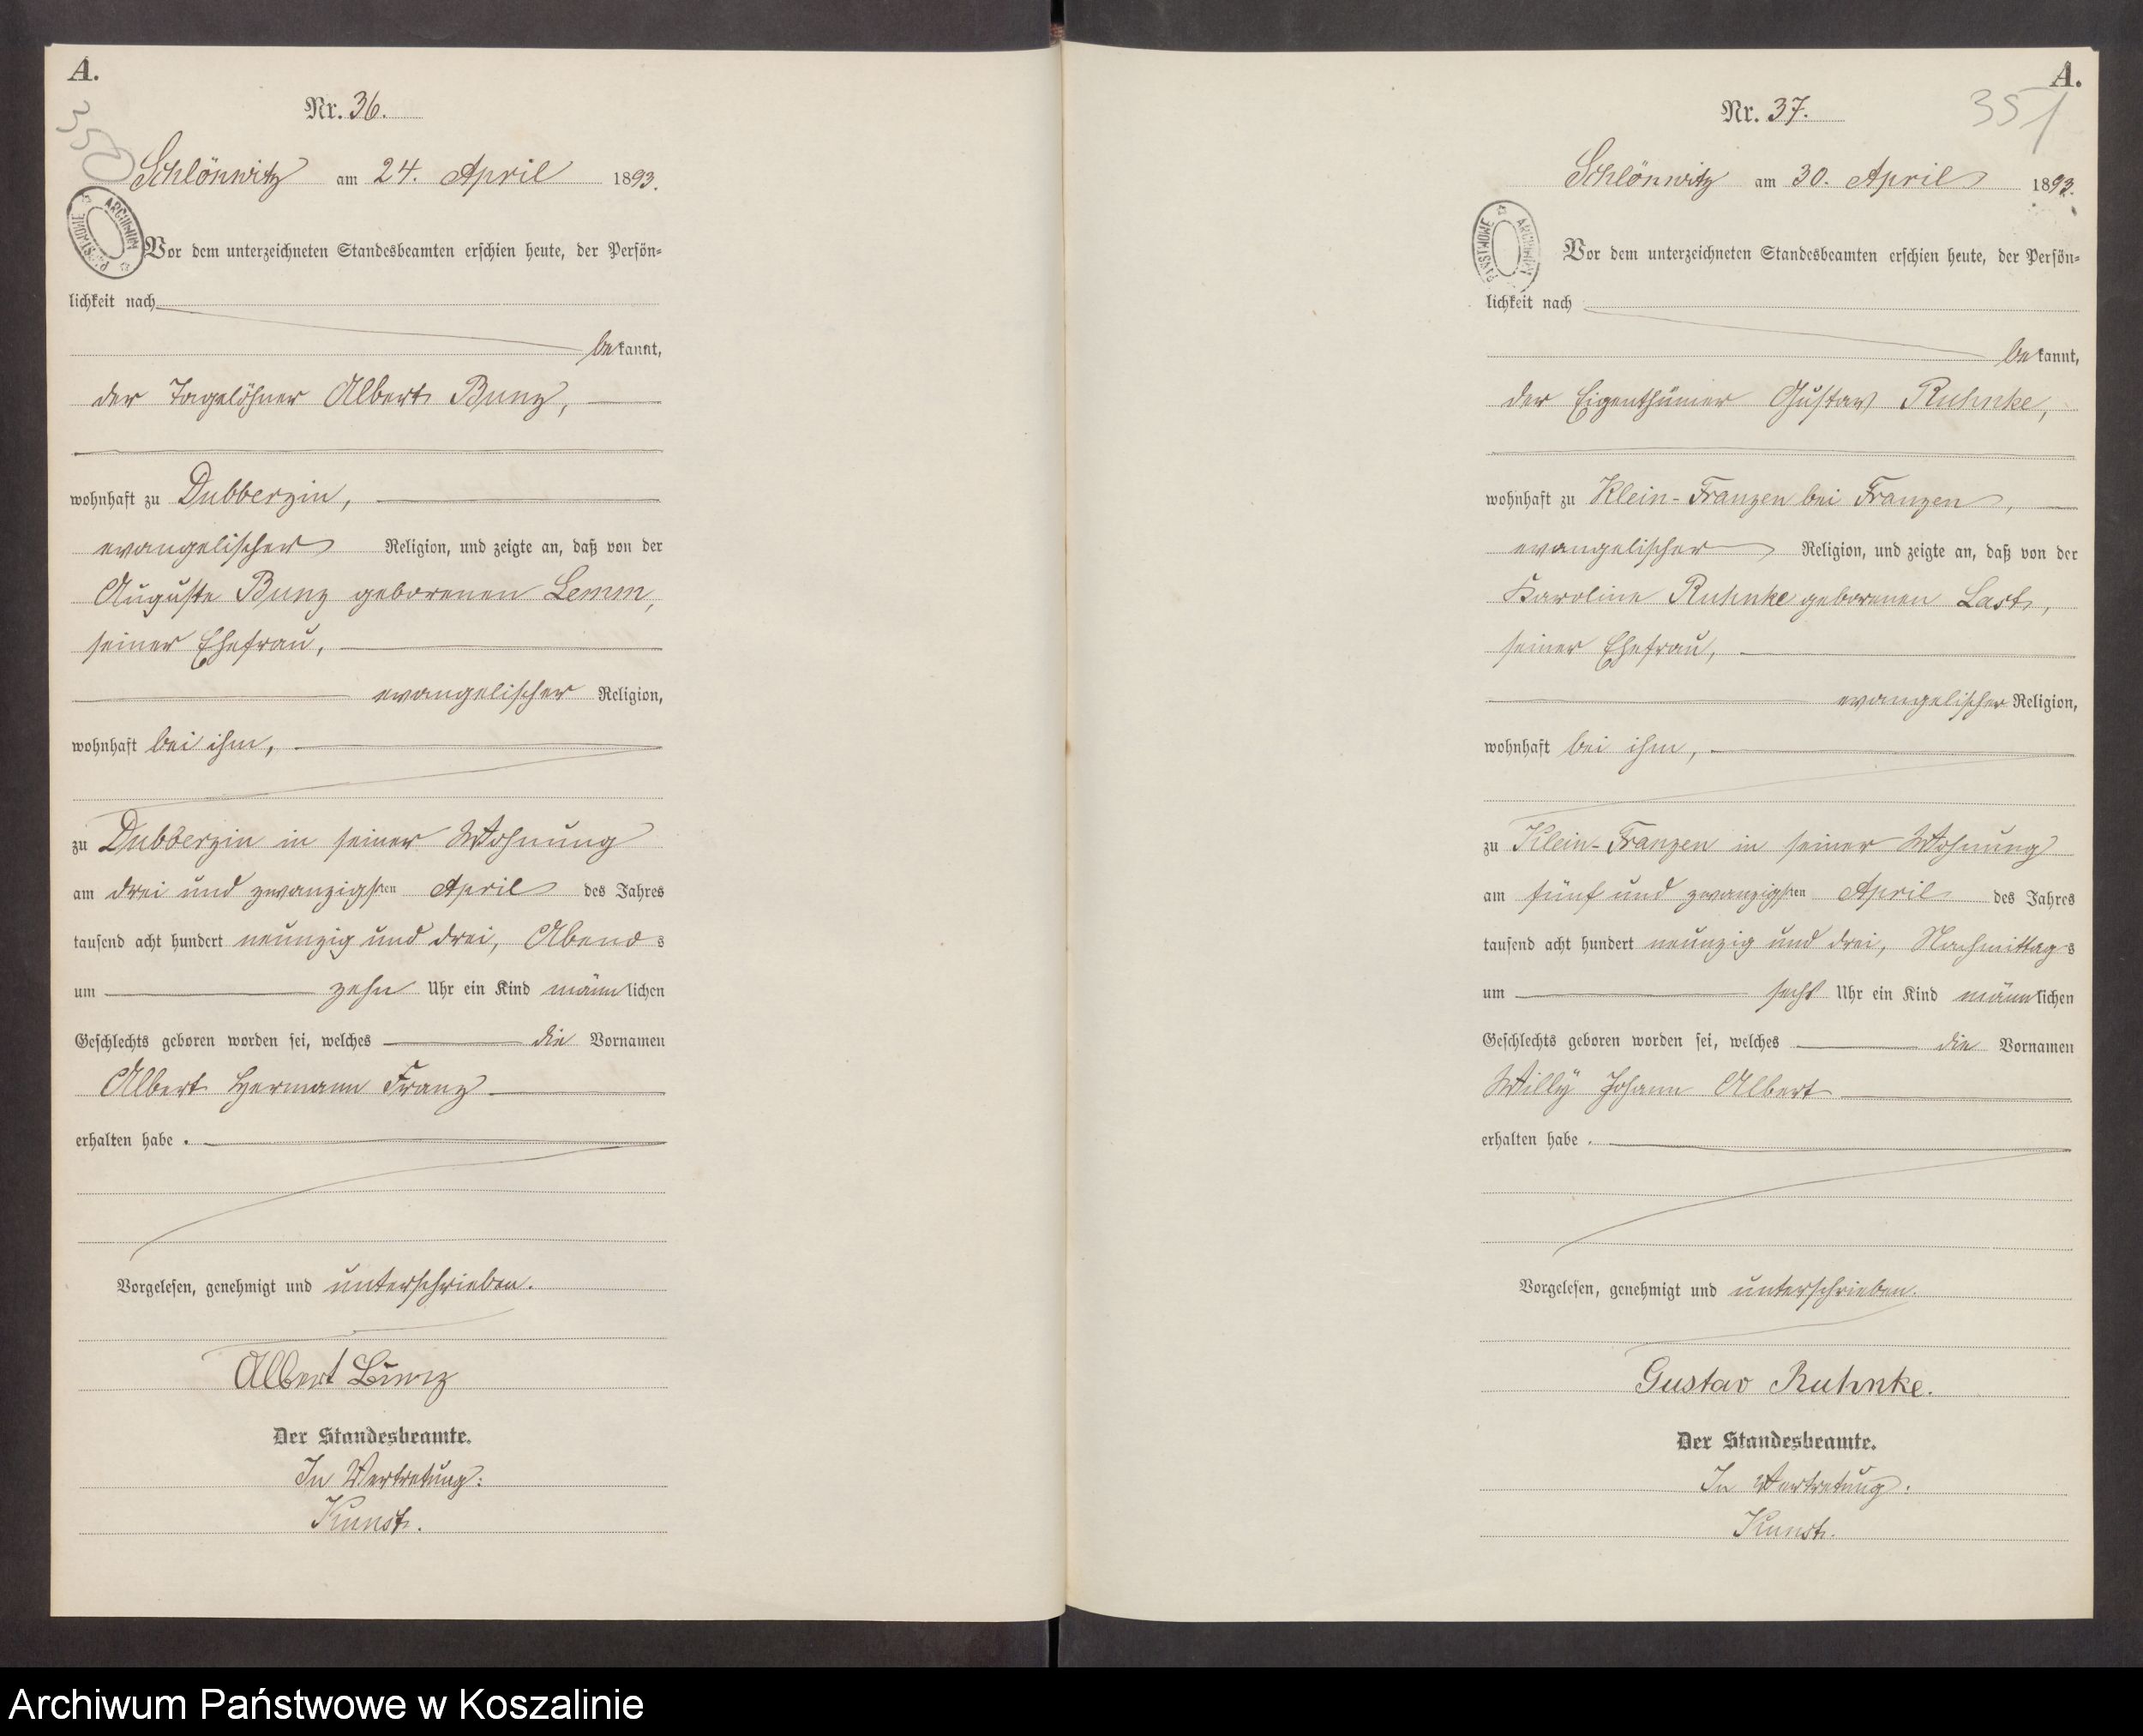 A.
350
Nr. 36.
Schlönwitz am 24. April 1893.
ARCHIWUM PAŃSTWOWE
Vor dem unterzeichneten Standesbeamten erschien heute, der Persön-
lichkeit nach
bekannt,
der Tagelöhner Albert Bunz,
wohnhaft zu Dubberzin,
evangelischer Religion, und zeigte an, daß von der
Auguste Bunz geborenen Lemm,
seiner Ehefrau,
evangelischer Religion,
wohnhaft bei ihm,
zu Dubberzin in seiner Wohnung
am drei und zwanzigsten April des Jahres
tausend acht hundert neunzig und drei, Abends
um zehn Uhr ein Kind männlichen
Geschlechts geboren worden sei, welches die Vornamen
Albert Hermann Franz
erhalten habe.
Vorgelesen, genehmigt und unterschrieben.
Albert Bunz
Der Standesbeamte.
In Vertretung:
Kunst.
A.
351
Nr. 37.
Schlönwitz am 30. April 1893.
ARCHIWUM PAŃSTWOWE
Vor dem unterzeichneten Standesbeamten erschien heute, der Persön-
lichkeit nach
bekannt,
der Eigenthümer Gustav Ruhnke,
wohnhaft zu Klein-Franzen bei Franzen,
evangelischer Religion, und zeigte an, daß von der
Karoline Ruhnke geborenen Last,
seiner Ehefrau,
evangelischer Religion,
wohnhaft bei ihm,
zu Klein-Franzen in seiner Wohnung
am fünf und zwanzigsten April des Jahres
tausend acht hundert neunzig und drei, Nachmittags
um sechs Uhr ein Kind männlichen
Geschlechts geboren worden sei, welches die Vornamen
Willy Johann Albert
erhalten habe.
Vorgelesen, genehmigt und unterschrieben.
Gustav Ruhnke.
Der Standesbeamte.
In Vertretung:
Kunst.
Archiwum Państwowe w Koszalinie